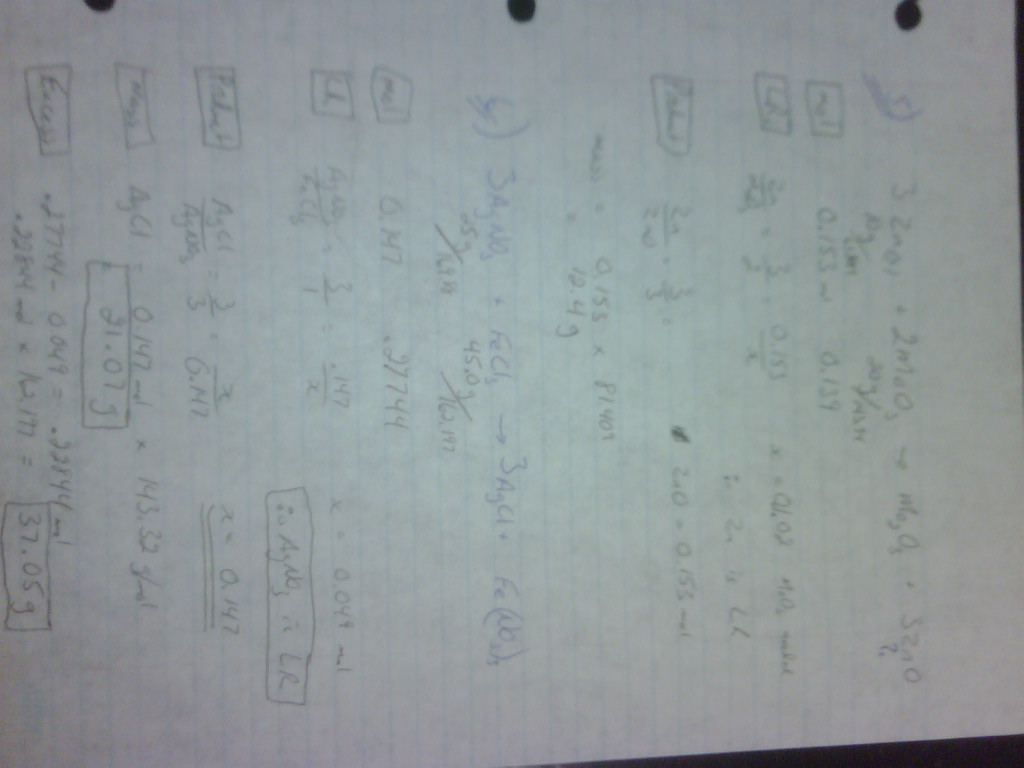 5) 3 Zn(s) + 2MoO3 → Mo2O3 + 3ZnO
10g 20g
mol 0.153 0.139
LR = 3/2 = 0.153/x x = 0.102 MoO3 needed
∴ Zn is LR
Product Zn/ZnO = 3/3 ZnO = 0.153 mol
mass = 0.153 x 81.408
= 12.44g
6) 3AgNO3 + FeCl3 → 3AgCl + Fe(NO3)3
25g 45.0g/162.197
mol 0.147 .27744
LR AgNO3/FeCl3 = 3/1 = .147/x x = 0.049 mol
∴ AgNO3 is LR
Product AgCl/AgNO3 = 3/3 = x/0.147 x = 0.147
Mass AgCl = 0.147 mol x 143.32 g/mol
= 21.07g
Excess .27744 - 0.049 = .22844 mol
.22844 mol x 162.197 = 37.05g